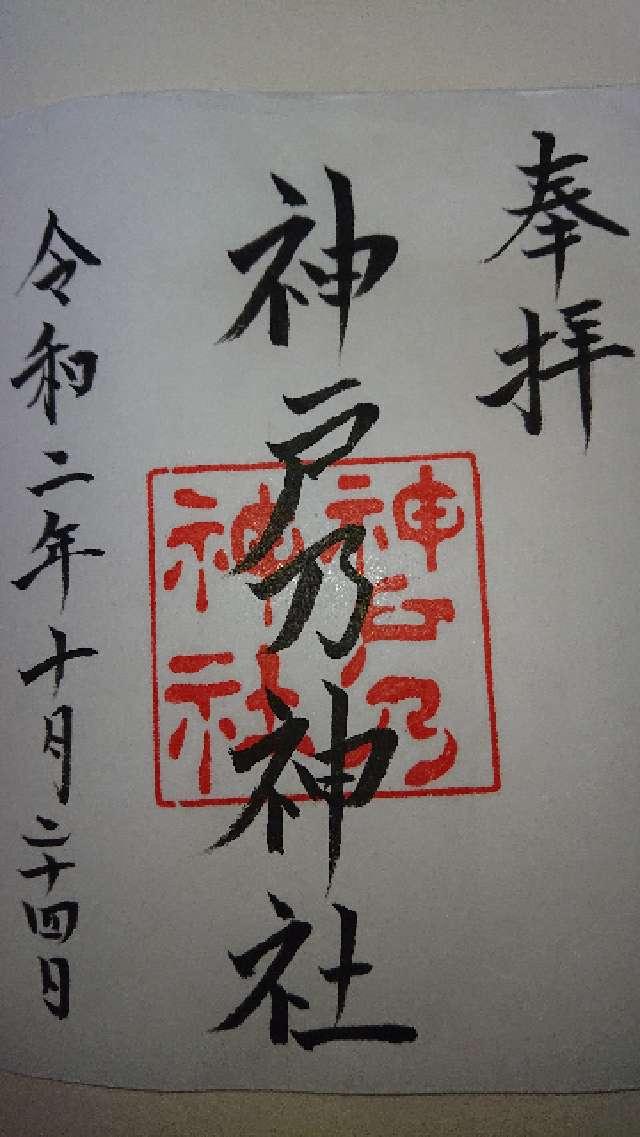 奉拝
神戸乃神社
神戸乃
神社
令和二年十月二十四日